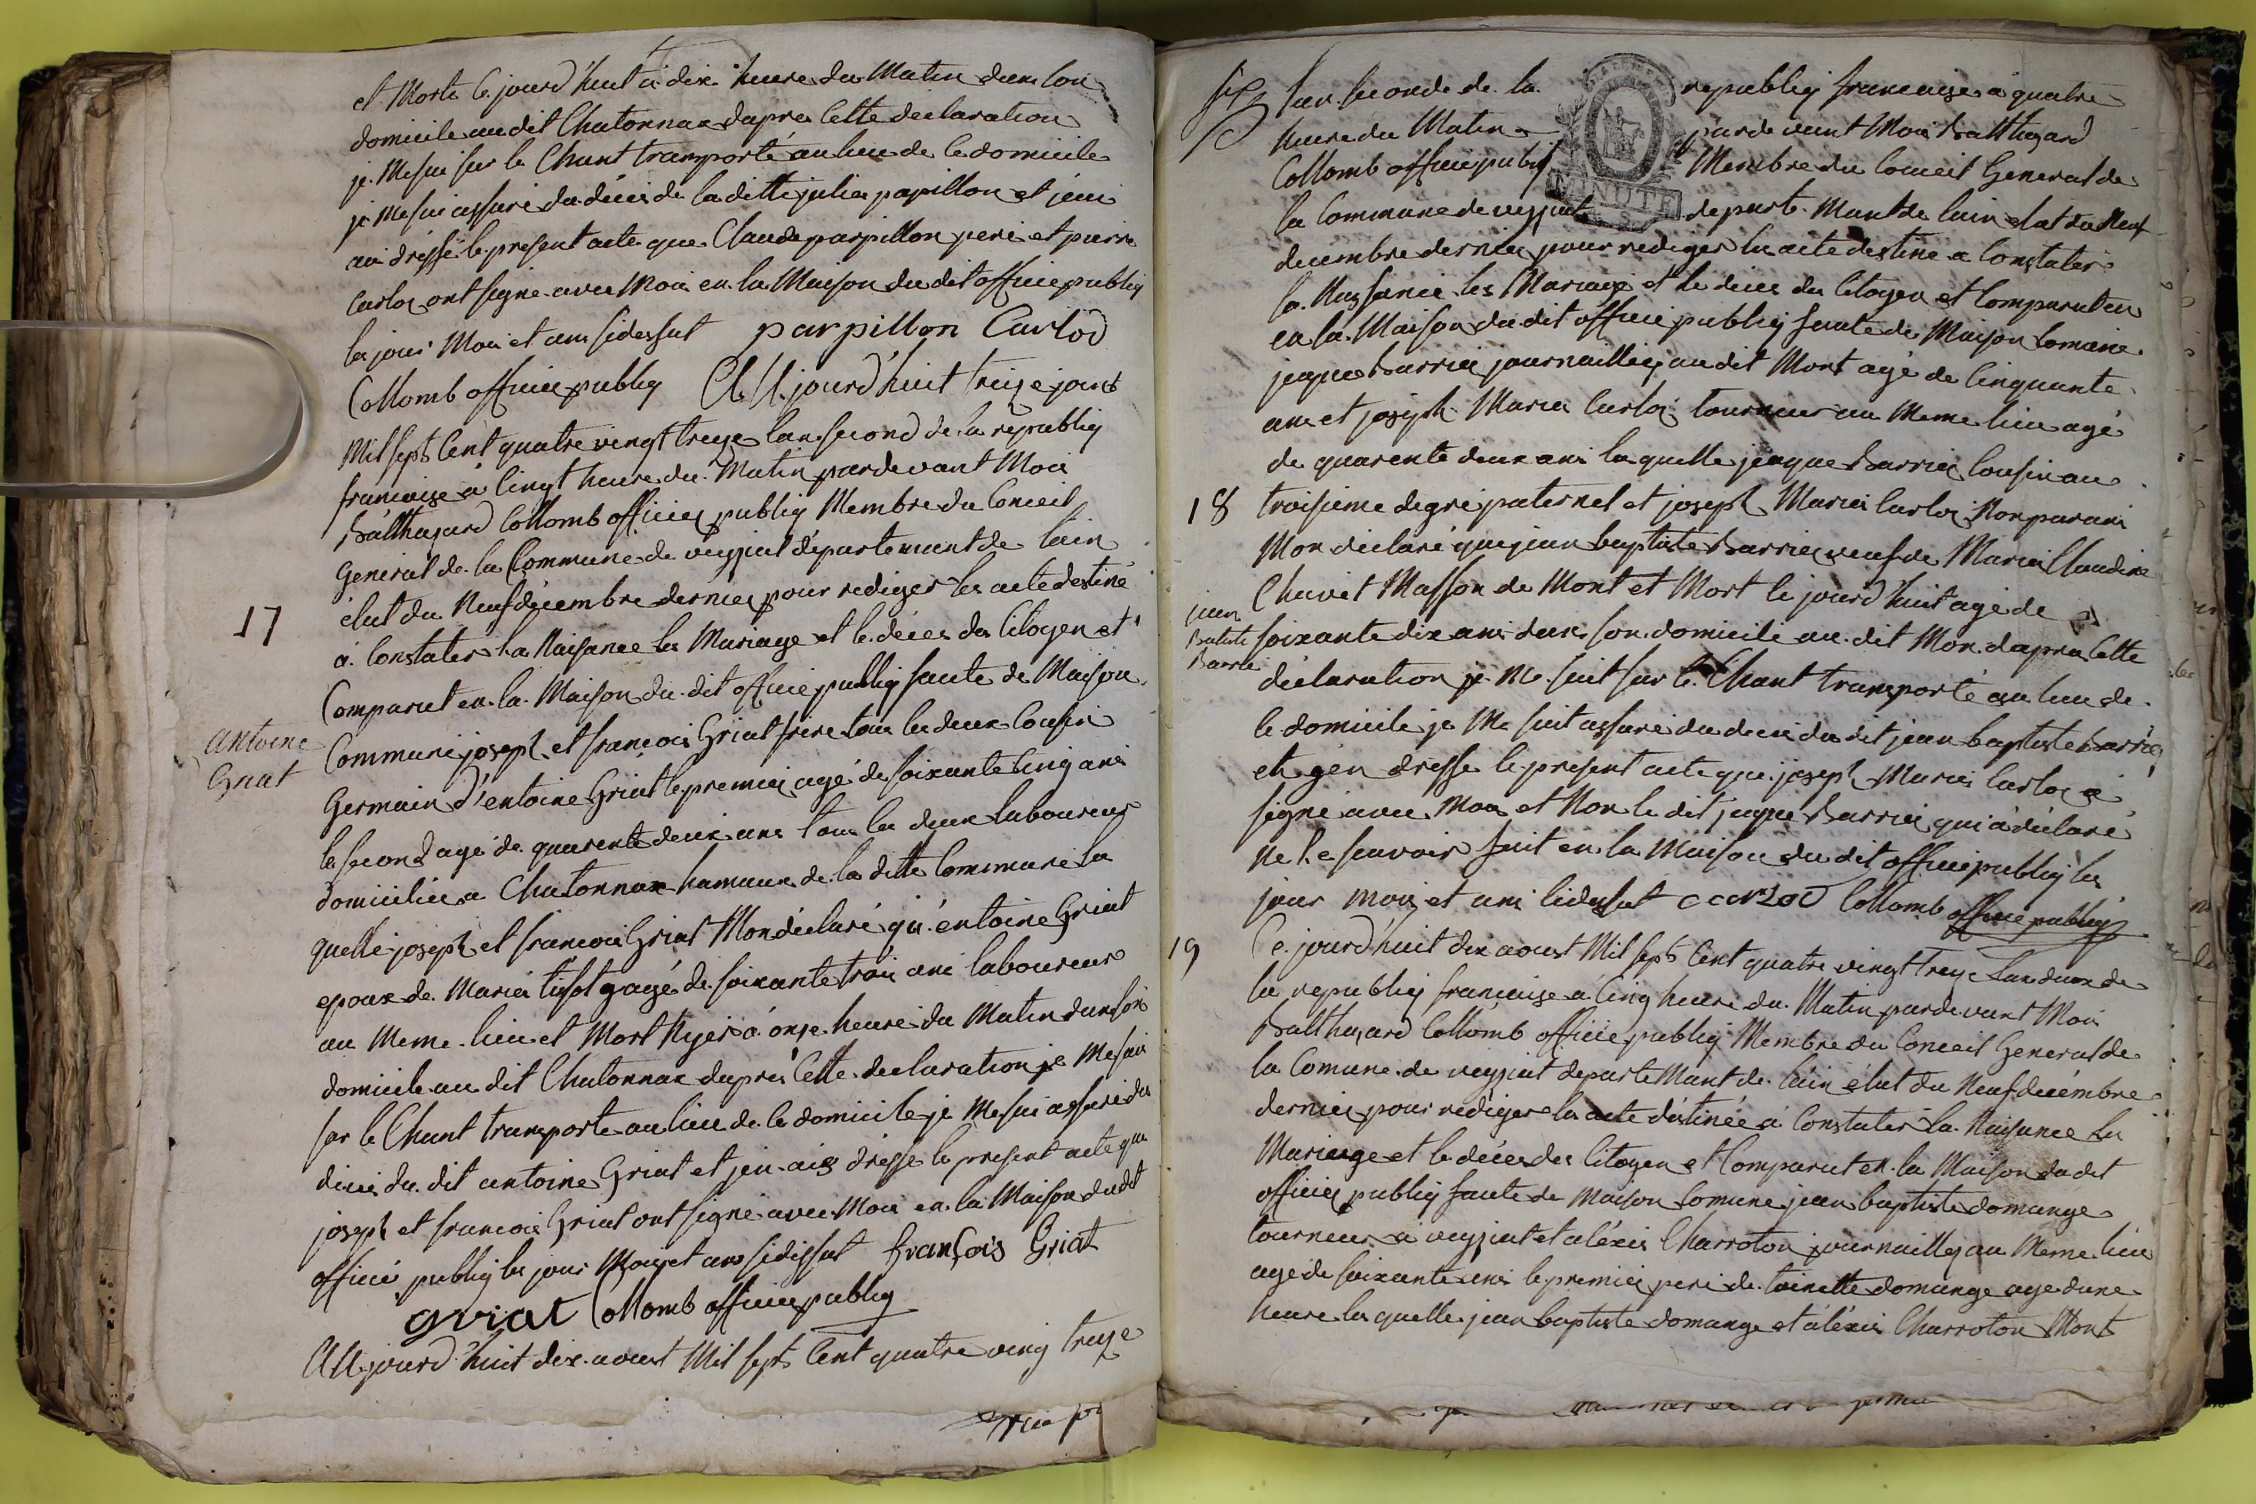 et Morte le jourd'huit à dix heure du Matin dans son
domicile audit Chatonnax dapres cette declaration
je Mesui sur le Chant transporté au lieu de ce domicile
je Mesui assuré du décès de la ditte julia papillon et jeui
ai dressé le present acte que Claude parpillon pere et pierre
Carloz ont signé avec Moi en la Maison du dit officie publiq
les jour Moi et ans sidessut parpillon Carlod
Collomb officie publiq Au jourd'huit treize jouit
Mil sept Cent quatre vingt treze lan second de la republiq
francaise à cinqt heure du Matin pardevant Moi
Balthazard Collomb officier publiq Membre du Conceil
General de la Commune de veyziat département de lain
élut du Neuf décembre dernier pour rediger les acte destiné
17
à Constater la Naisance les Mariage et le décès des Citoyen et
Comparut en la Maison du dit officie publiq faute de Maison
Antoine
Griat
Commune joseph et francois Griat frere tous les deux Cousin
Germain d'entoine Griat le premier agé de soixante cinq ans
le second agé de quarente deux ans tous les deux laboureur
domiciliés a Chatonnax hameaux de la ditte Commune la
quelle joseph et francois Griat Mon déclaré qu'entoine Griat
epoux de Marie tissot gagé de soixante trois ans laboureur
au Meme lieu et Mort hyer à onze heure du Matin dans son
domicile au dit Chatonnax dapres Cette declaration je Mesui
sur le Chant transporte au lieu de le domicile je Mesui assuré du
décès du dit antoine Griat et jen ais dressé le present acte que
joseph et francois Griat ont signé avec Moi en la Maison dudit
officié publiq les jour Moi et ans sidissut françois Griat
griat Collomb officie publiq
Aujourd'huit dix avout Mil sept Cent quatre ving treze
six lan seconde de la republiq francaise a quatre
heure du Matin pardevant Moi Balthazard
Collomb officie publiq Membre du Conceil General de
MINUTE
la Commune de veyziat departe Mant de lain elut du Neuf
decembre dernier pour rediger les acte destine a Constater
la Naissance les Mariage et le décès des Citoyen et Comparut en
en la Maison du dit officie publiq faute de Maison Comune
jaque Barrier journaillier au dit Mont agé de Cinquante
ans et joseph Marie Carloz tourneur au Meme lieu agé
de quarente deux ans la quelle jeaque Barrier Cousin au
18
troisieme degré paternel et joseph Marie Carloz Non parani
Mon declaré que jean baptiste Barrier veuf de Marie Claudine
Chavet Masson de Mont et Mort le jourd'huit agé de
jean
Batiste
Barrie
soixante dix ans dans son domicile au dit Mon dapres Cette
déclaration je Me suit sur le Chant transporté au lieu de
le domicile je Me suit assuré du deces du dit jean baptiste barrier
et gen dresse le present acte que joseph Marie Carloz a
signé avec Moi et Non le dit jaque Barrier qui a déclaré
ne le scavoir fait en la Maison du dit officie publiq les
jour Moi et ans sidessut carlod Collomb officie publiq
19
Ce jourd'huit dix aoust Mil sept Cent quatre vingt treze lan deux de
la republiq francaise à Cinq heure du Matin pardevant Moi
Balthazard Collomb officie publiq Membre du Conceil General de
la Comune de veyziat departe Mant de lain élut du Neuf décembre
dernier pour rediger les acte déstinée à Constater la Naisance les
Mariage et le décès des Citoyen et Comparut en la Maison dudit
officier publiq faute de Maison Comune jean baptiste domange
tourneur a veyziat et aléxis Charroton journaillier au Meme lieu
agé de soixante ans le premier pere de toinette domange agé dune
heure la quelle jean baptiste domange et aléxis Charroton Mont